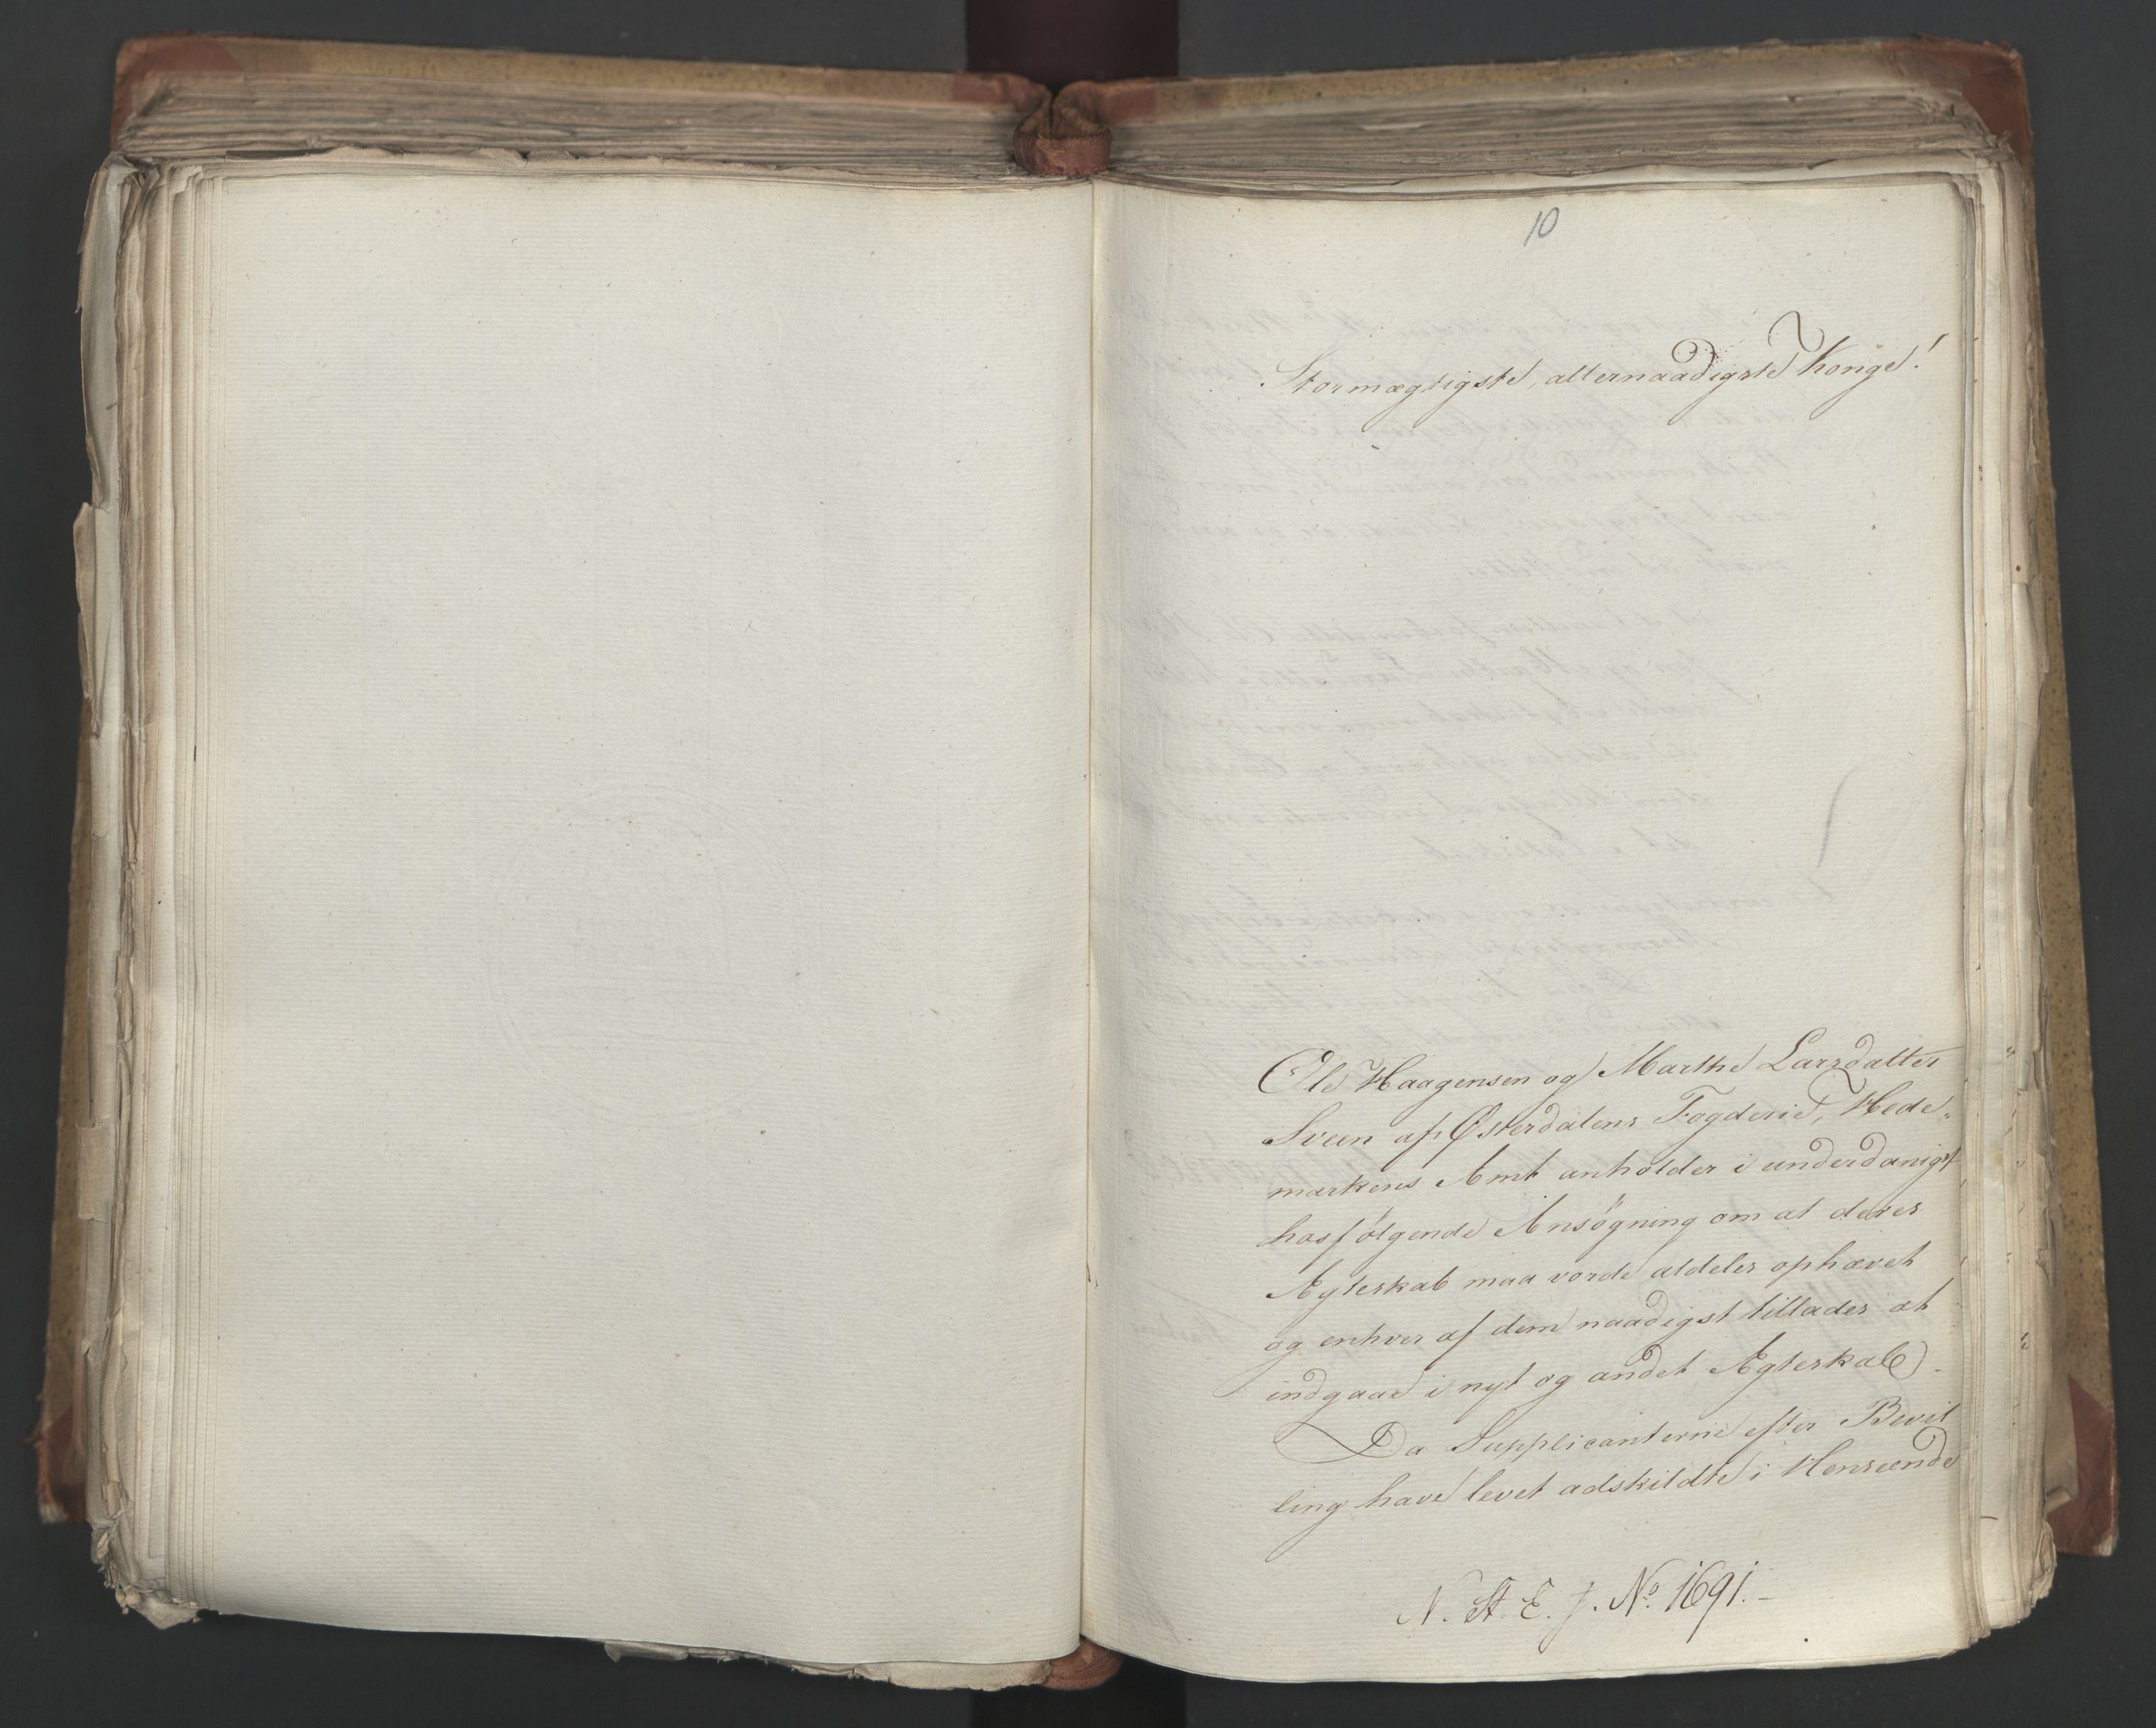 10
Stormægtigste, allernaadigste Konge!
Ole Haagensen og Marthe Larsdatter
Sveen af Østerdalens Fogderie, Hede-
markens Amt anholder i underdanigst
hosfølgende Ansøgning om at deres
Ægteskab maa vorde aldeles ophævet
og enhver af dem naadigst tillades at
indgaae i nyt og andet Ægteskab.
Da Supplicanterne efter Bevil
ling have levet adskildte i Henseende
N. St. E. J. No. 1691.